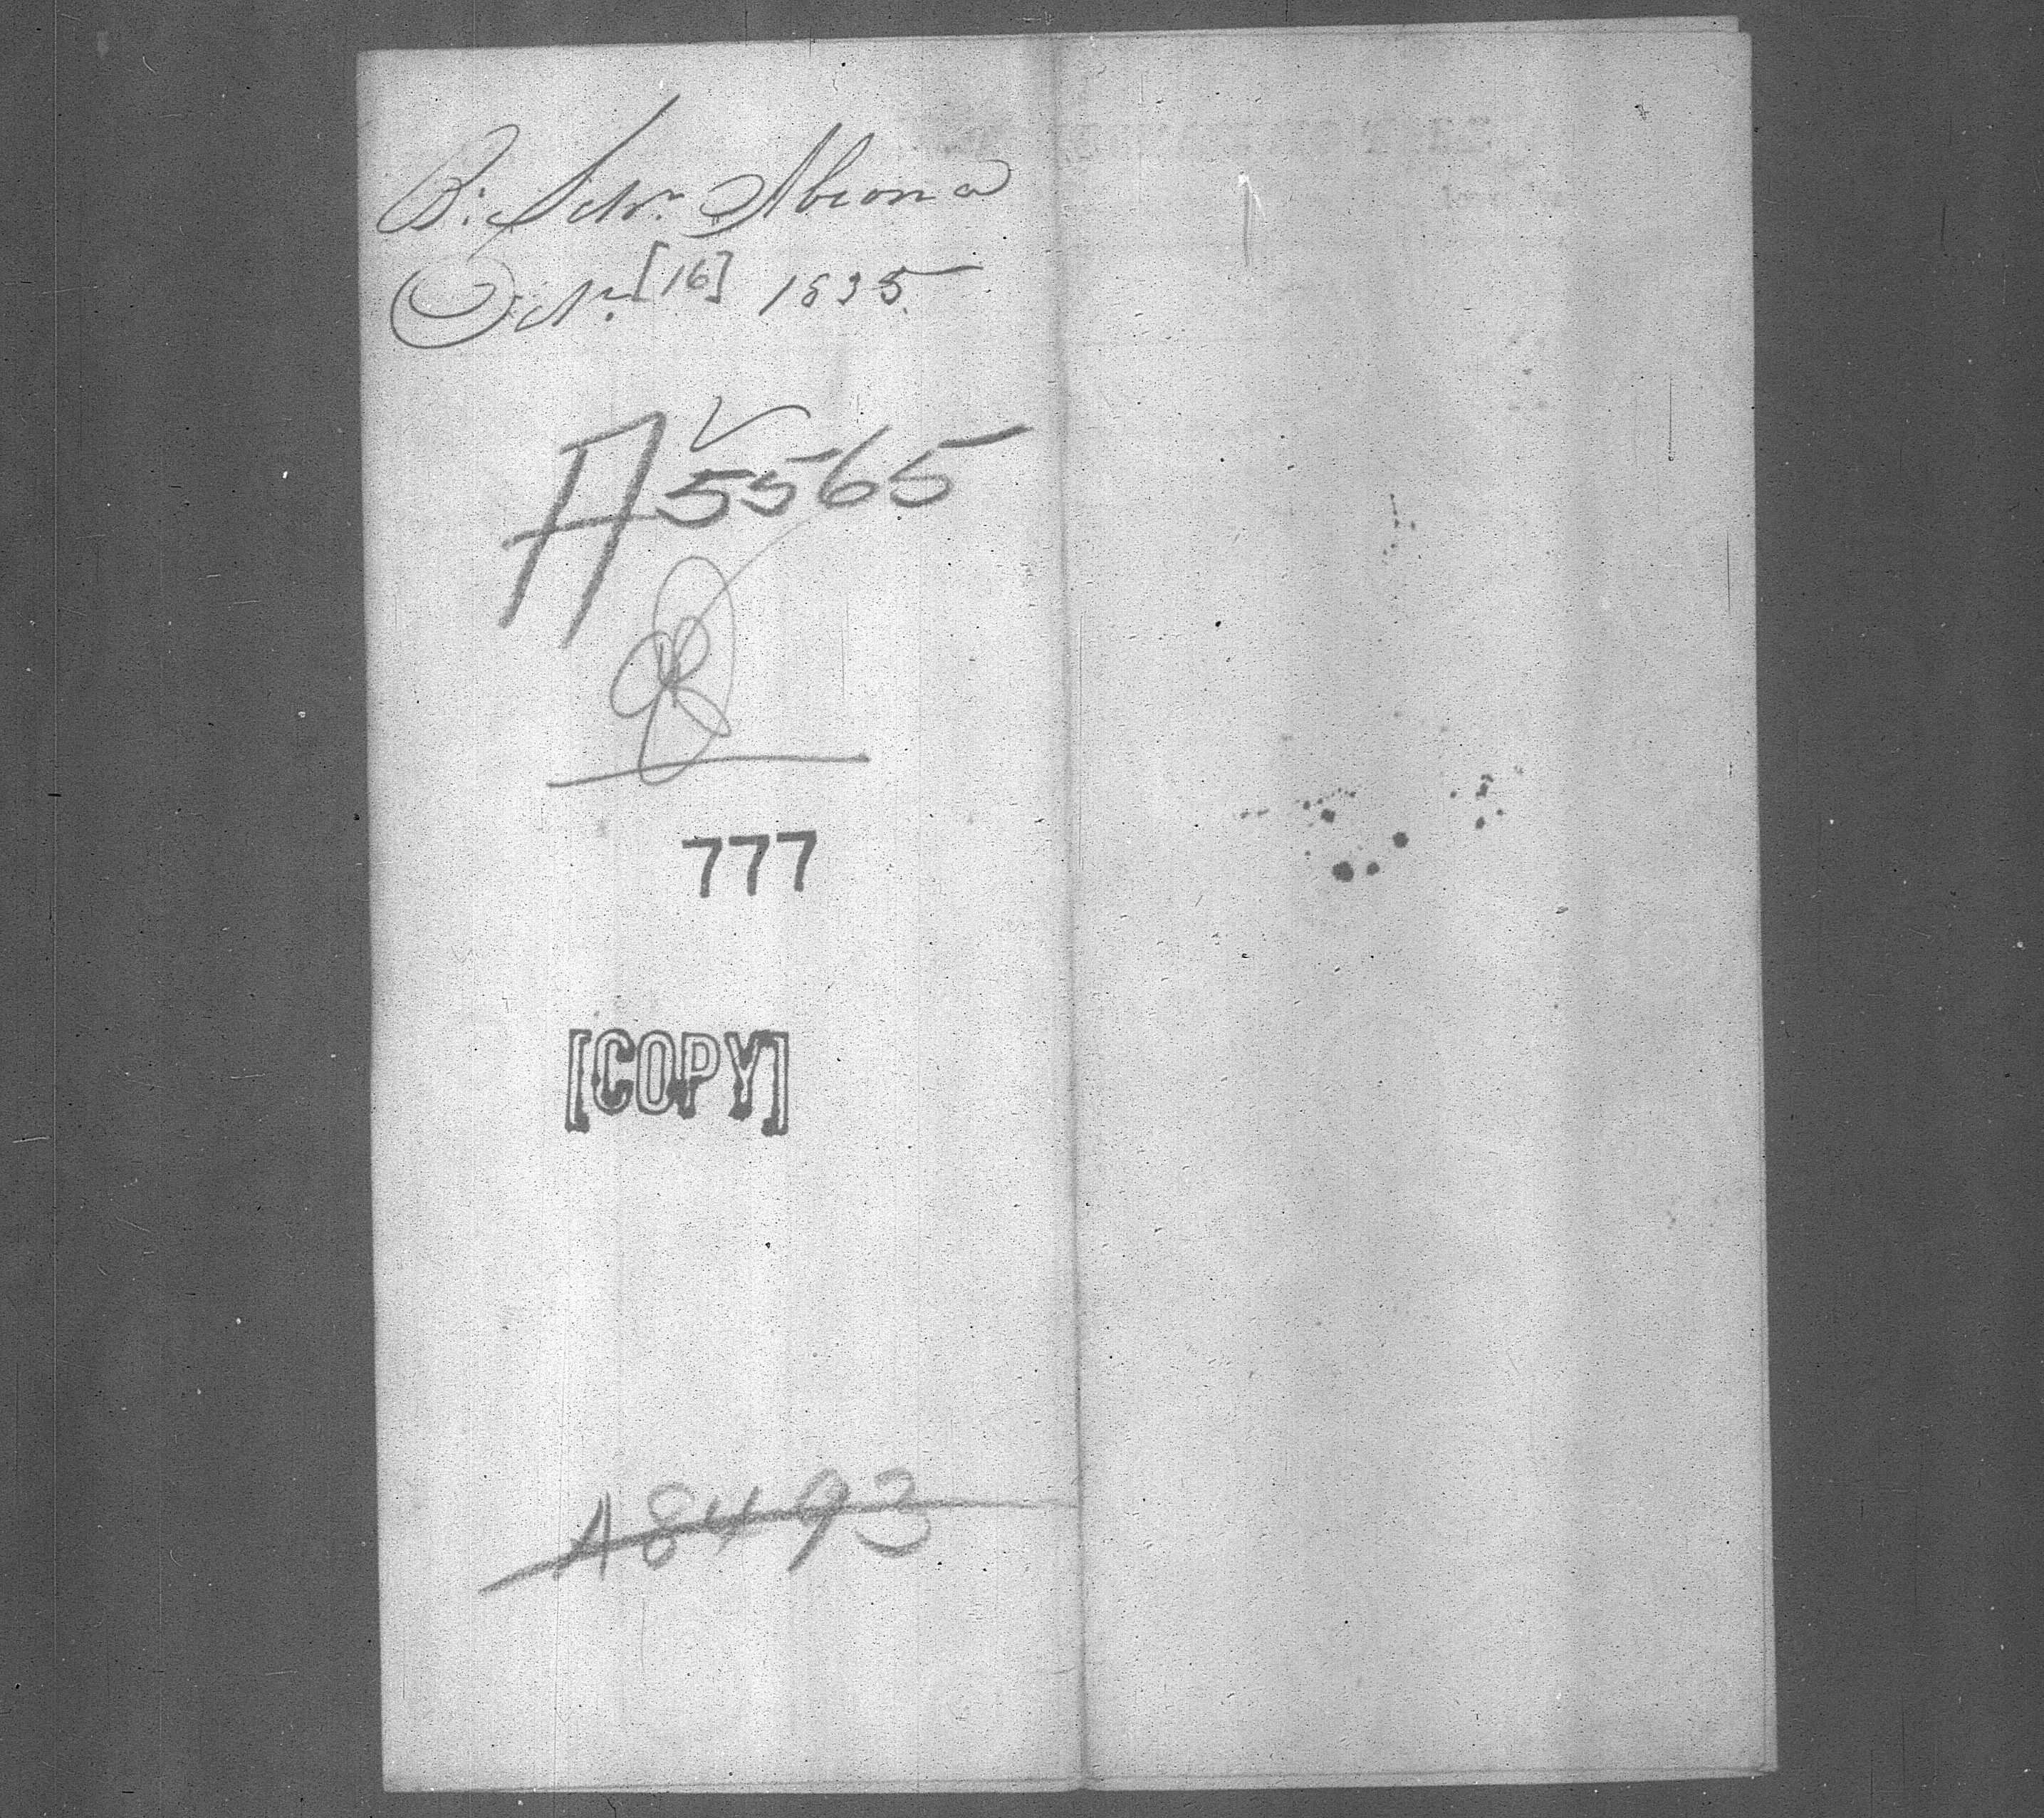 B: Schr. Abiona
Octr. [16] 1835.
A 5565
777
[COPY]
A8493